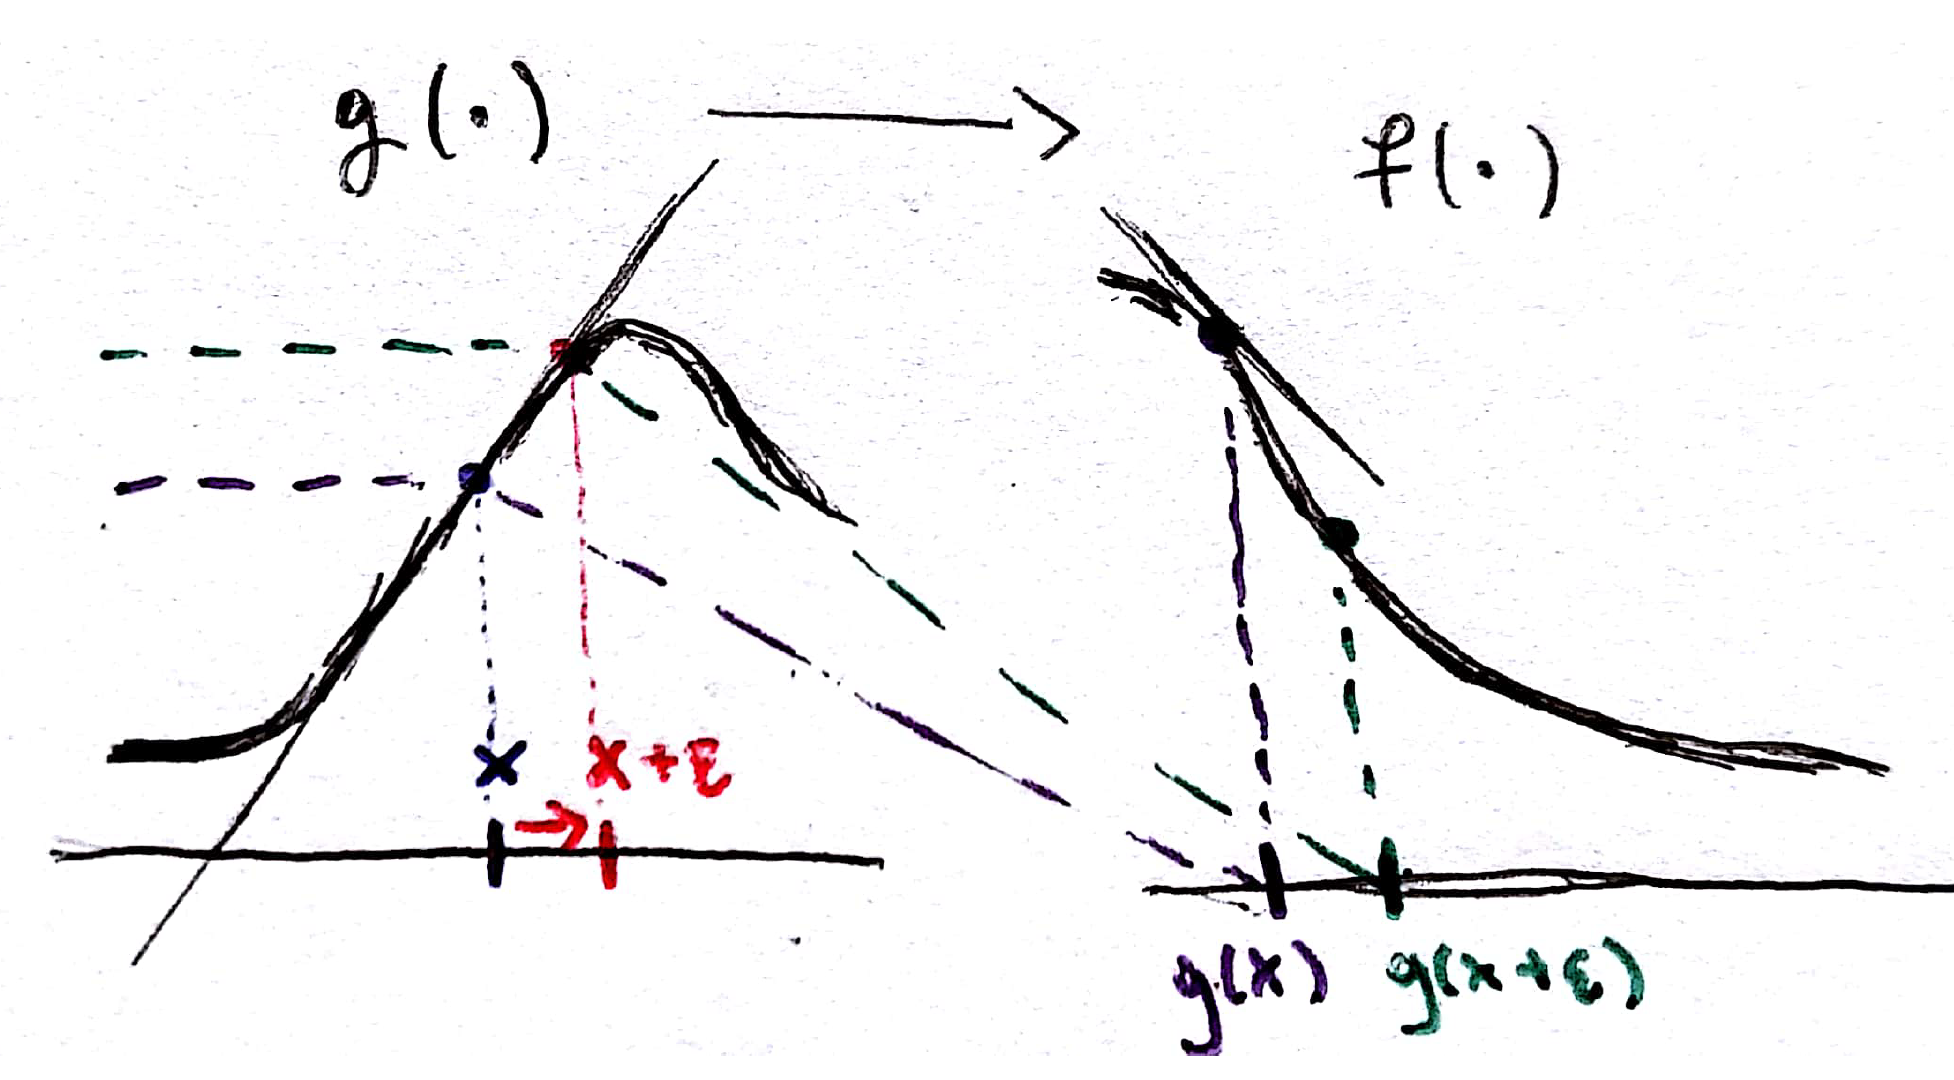 g(·)
f(·)
x
x+ε
g(x)
g(x+ε)